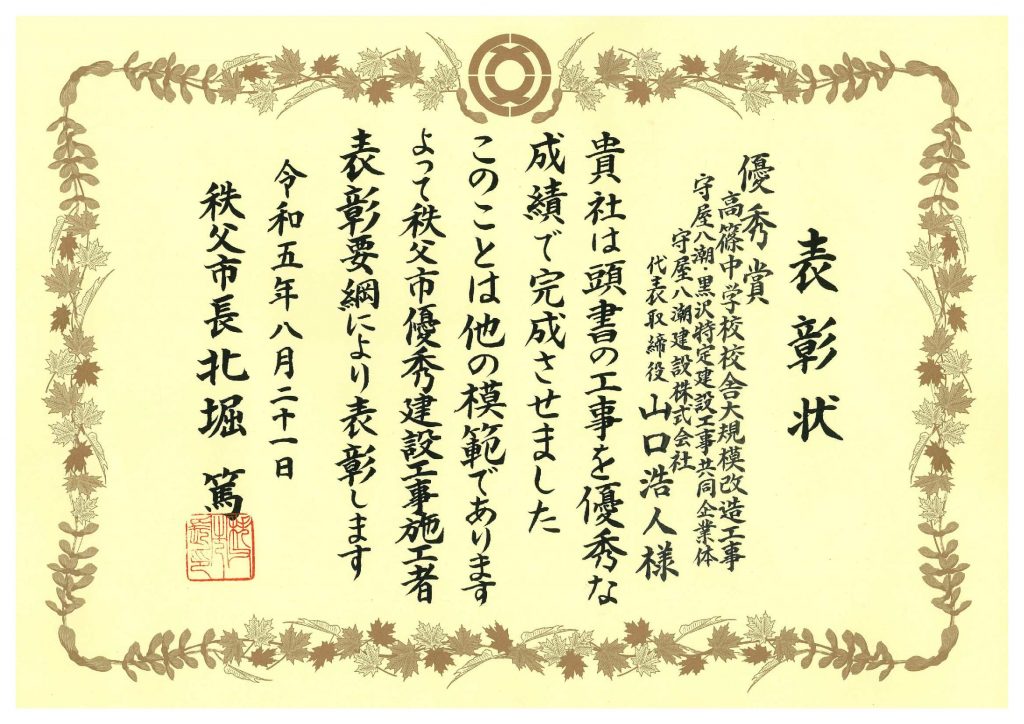 表彰状
優秀賞
高篠中学校校舎大規模改造工事
守屋八潮・黒沢特定建設工事共同企業体
守屋八潮建設株式会社
代表取締役 山口浩人様
貴社は頭書の工事を優秀な
成績で完成させました
このことは他の模範であります
よって秩父市優秀建設工事施工者
表彰要綱により表彰します
令和五年八月二十一日
秩父市長 北堀 篤